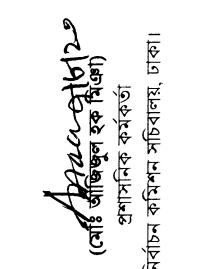 (মোঃ আজিজুল হক মিঞা)
প্রশাসনিক কর্মকর্তা
নির্বাচন কমিশন সচিবালয়, ঢাকা।